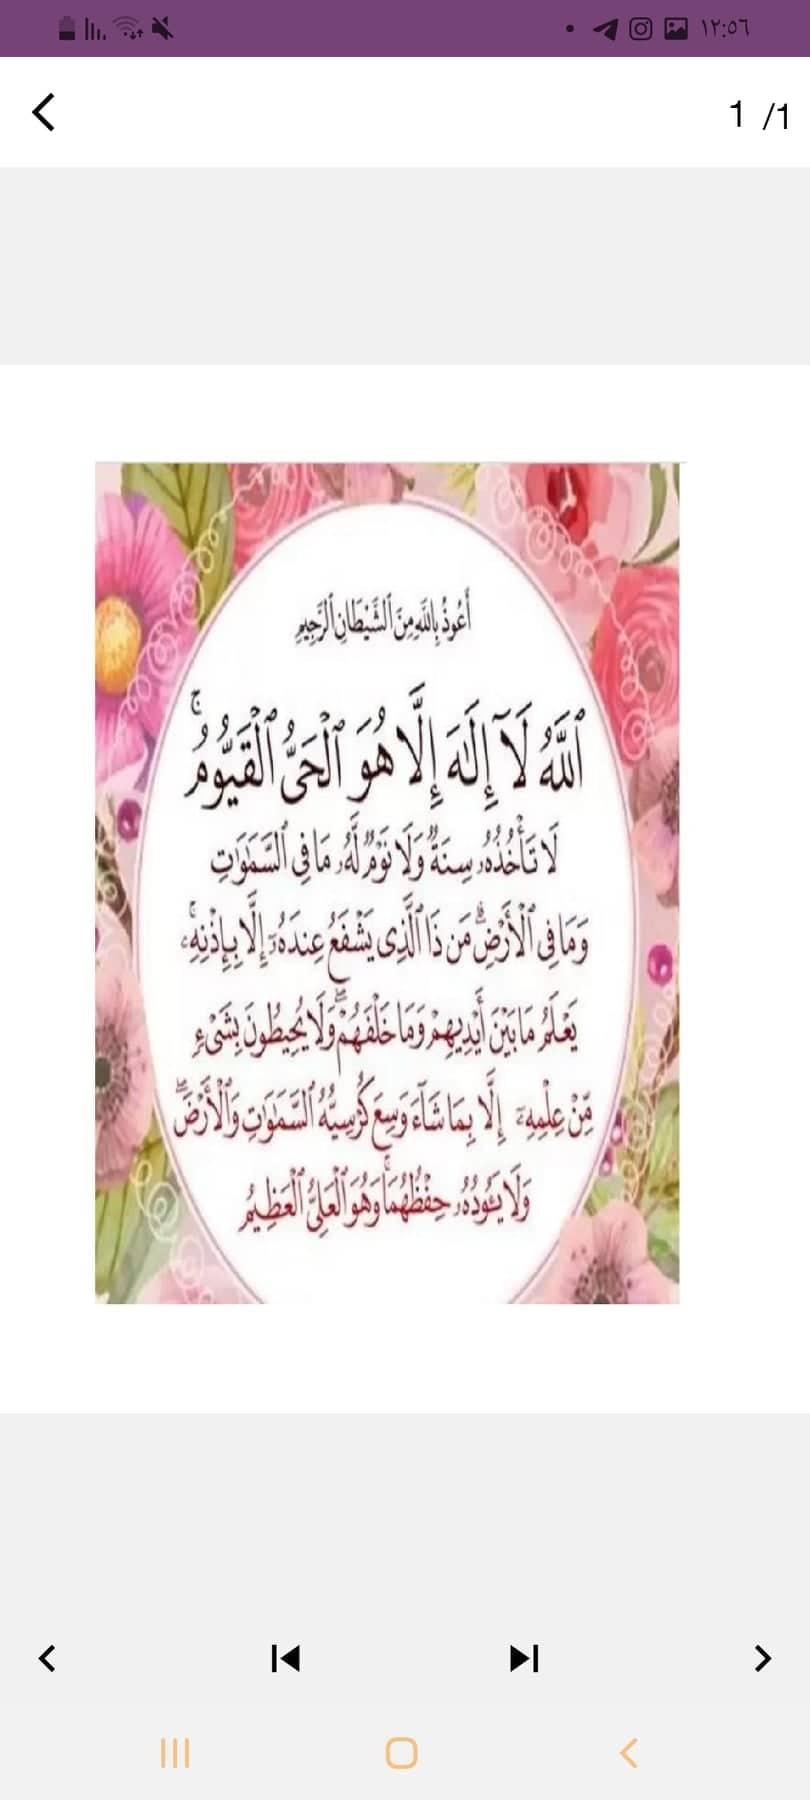 ١٢:٥٦
1 /1
أَعُوذُ بِٱللَّهِ مِنَ ٱلشَّيْطَانِ ٱلرَّجِيمِ
ٱللَّهُ لَآ إِلَٰهَ إِلَّا هُوَ ٱلْحَىُّ ٱلْقَيُّومُ ۚ
لَا تَأْخُذُهُۥ سِنَةٌ وَلَا نَوْمٌ لَّهُۥ مَا فِى ٱلسَّمَٰوَٰتِ
وَمَا فِى ٱلْأَرْضِ ۗ مَن ذَا ٱلَّذِى يَشْفَعُ عِندَهُۥٓ إِلَّا بِإِذْنِهِۦ ۚ
يَعْلَمُ مَا بَيْنَ أَيْدِيهِمْ وَمَا خَلْفَهُمْ ۖ وَلَا يُحِيطُونَ بِشَىْءٍ
مِّنْ عِلْمِهِۦٓ إِلَّا بِمَا شَآءَ وَسِعَ كُرْسِيُّهُ ٱلسَّمَٰوَٰتِ وَٱلْأَرْضَ ۖ
وَلَا يَـُٔودُهُۥ حِفْظُهُمَا ۚ وَهُوَ ٱلْعَلِىُّ ٱلْعَظِيمُ